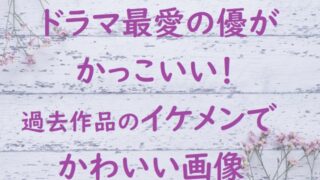 ドラマ最愛の優が
かっこいい!
過去作品のイケメンで
かわいい画像